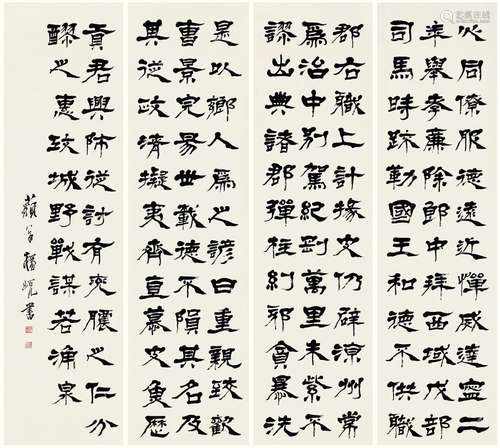 心同僚服德遠近憚威建寧二
年舉孝廉除郎中拜西域戊部
司馬時疎勒國王和德不供職
郡右職上計掾史仍辟涼州常
為治中別駕紀剛萬里朱紫不
謬出典諸郡彈枉糾邪貪暴洗
是以鄉人為之諺曰重親致歡
曹景完易世載德不隕其名及
其從政清擬夷齊直慕史魚歷
貢君興師征討有兗膿之仁分
醪之惠攻城野戰謀若涌泉
書